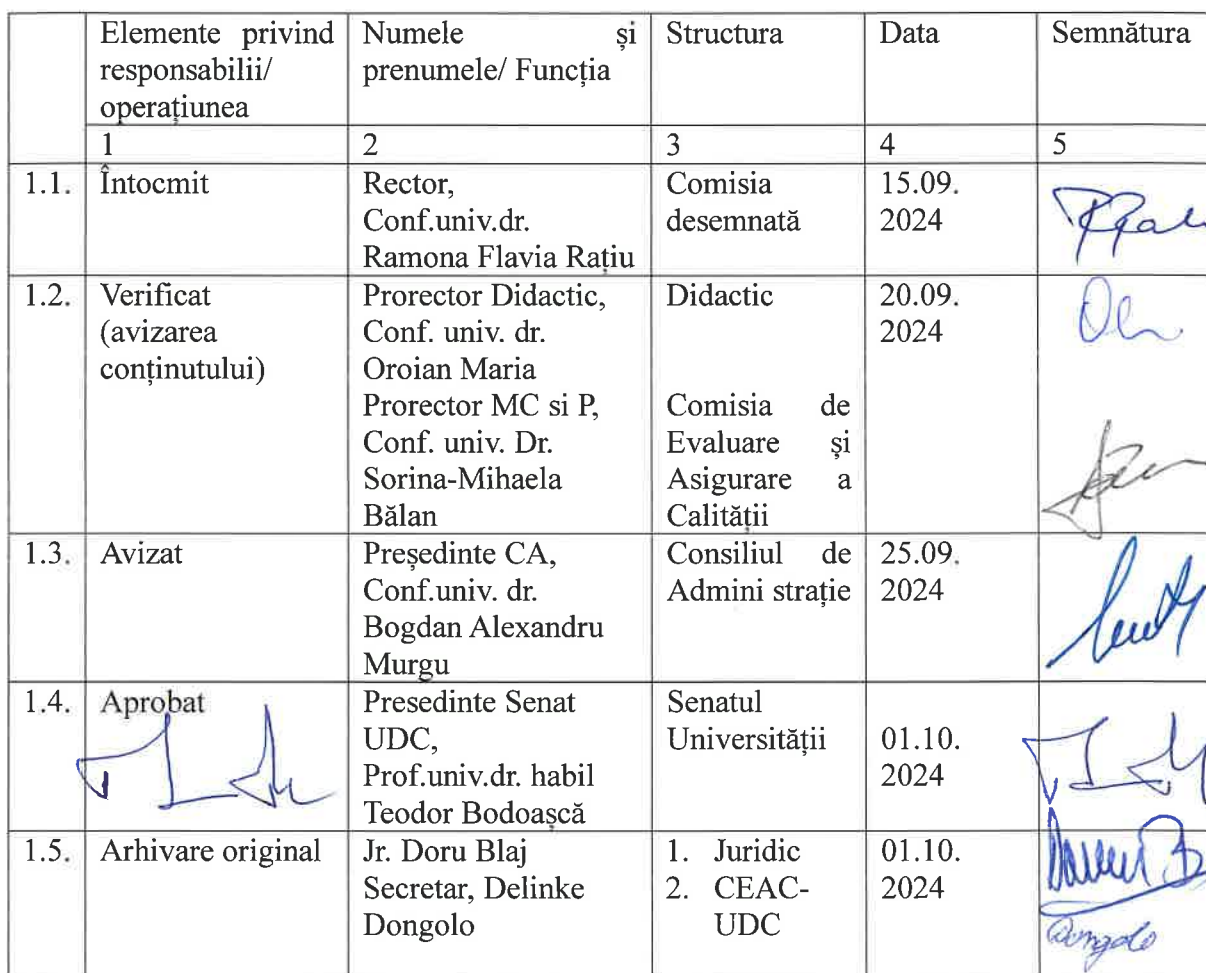 Elemente privind
responsabilii/
operațiunea
Numele și
prenumele/ Funcția
Structura
Data
Semnătura
1
2
3
4
5
1.1.
Întocmit
Rector,
Conf.univ.dr.
Ramona Flavia Rațiu
Comisia
desemnată
15.09.
2024
1.2.
Verificat
(avizarea
conținutului)
Prorector Didactic,
Conf. univ. dr.
Oroian Maria
Prorector MC si P,
Conf. univ. Dr.
Sorina-Mihaela
Bălan
Didactic
Comisia de
Evaluare și
Asigurare a
Calității
20.09.
2024
1.3.
Avizat
Președinte CA,
Conf.univ. dr.
Bogdan Alexandru
Murgu
Consiliul de
Admini strație
25.09.
2024
1.4.
Aprobat
Presedinte Senat
UDC,
Prof.univ.dr. habil
Teodor Bodoașcă
Senatul
Universității
01.10.
2024
1.5.
Arhivare original
Jr. Doru Blaj
Secretar, Delinke
Dongolo
1. Juridic
2. CEAC-
UDC
01.10.
2024
Dongolo